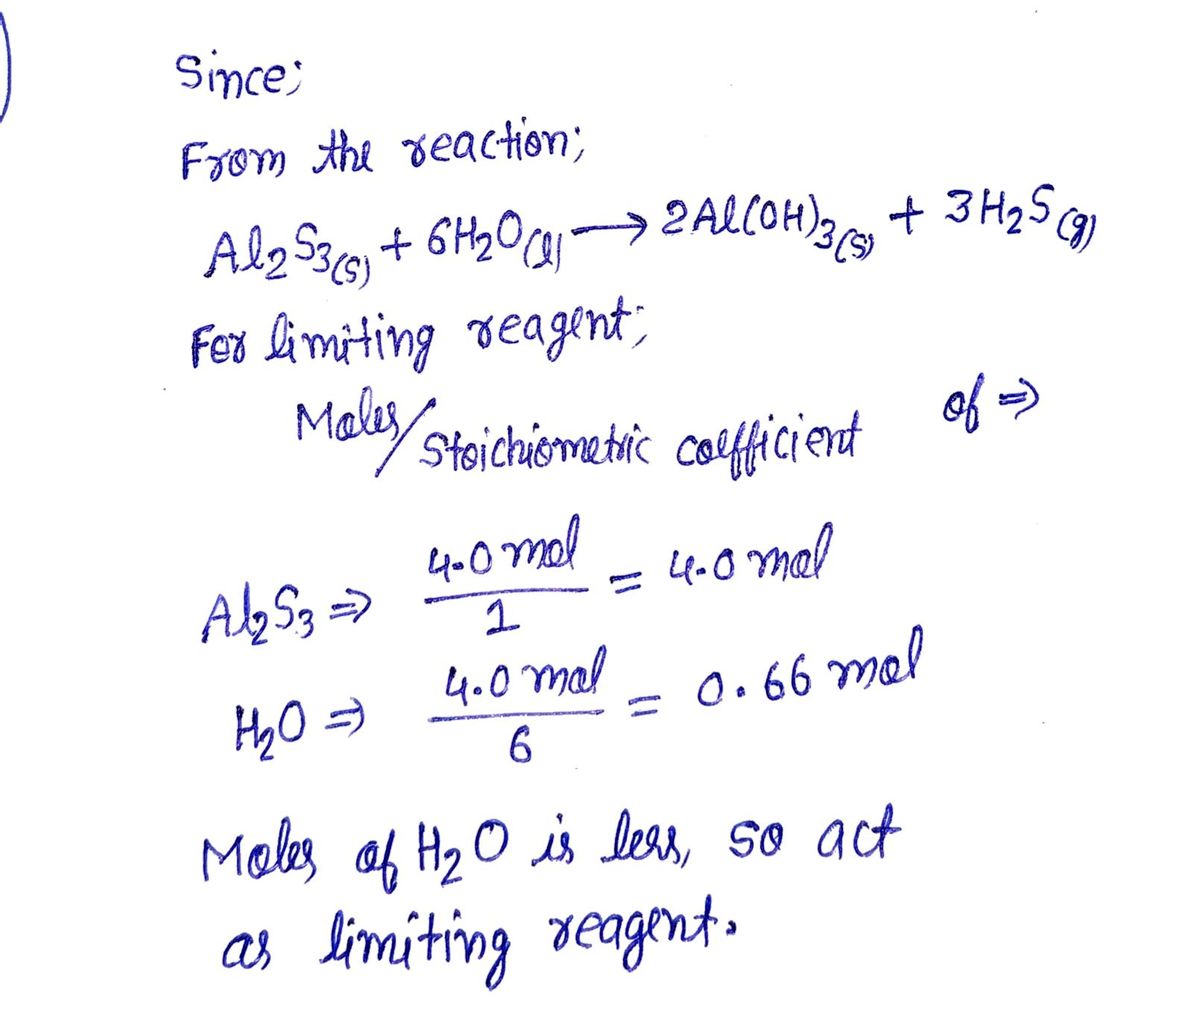 Since;
From the reaction;
Al2S3(s) + 6H2O(l) → 2Al(OH)3(s) + 3H2S(g)
For limiting reagent;
Moles/Stoichiometric coefficient of ⇒
Al2S3 ⇒ 4.0 mol / 1 = 4.0 mol
H2O ⇒ 4.0 mol / 6 = 0.66 mol
Moles of H2O is less, so act
as limiting reagent.